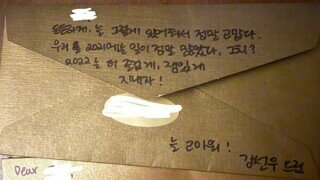 늘 그렇게 있어줘서 정말 고맙다.
우리 올 2021에는 일이 정말 많았다, 그치?
2022는 더 즐겁게, 재밌게
지내자!
늘 고마워! 김선우 드림
Dear